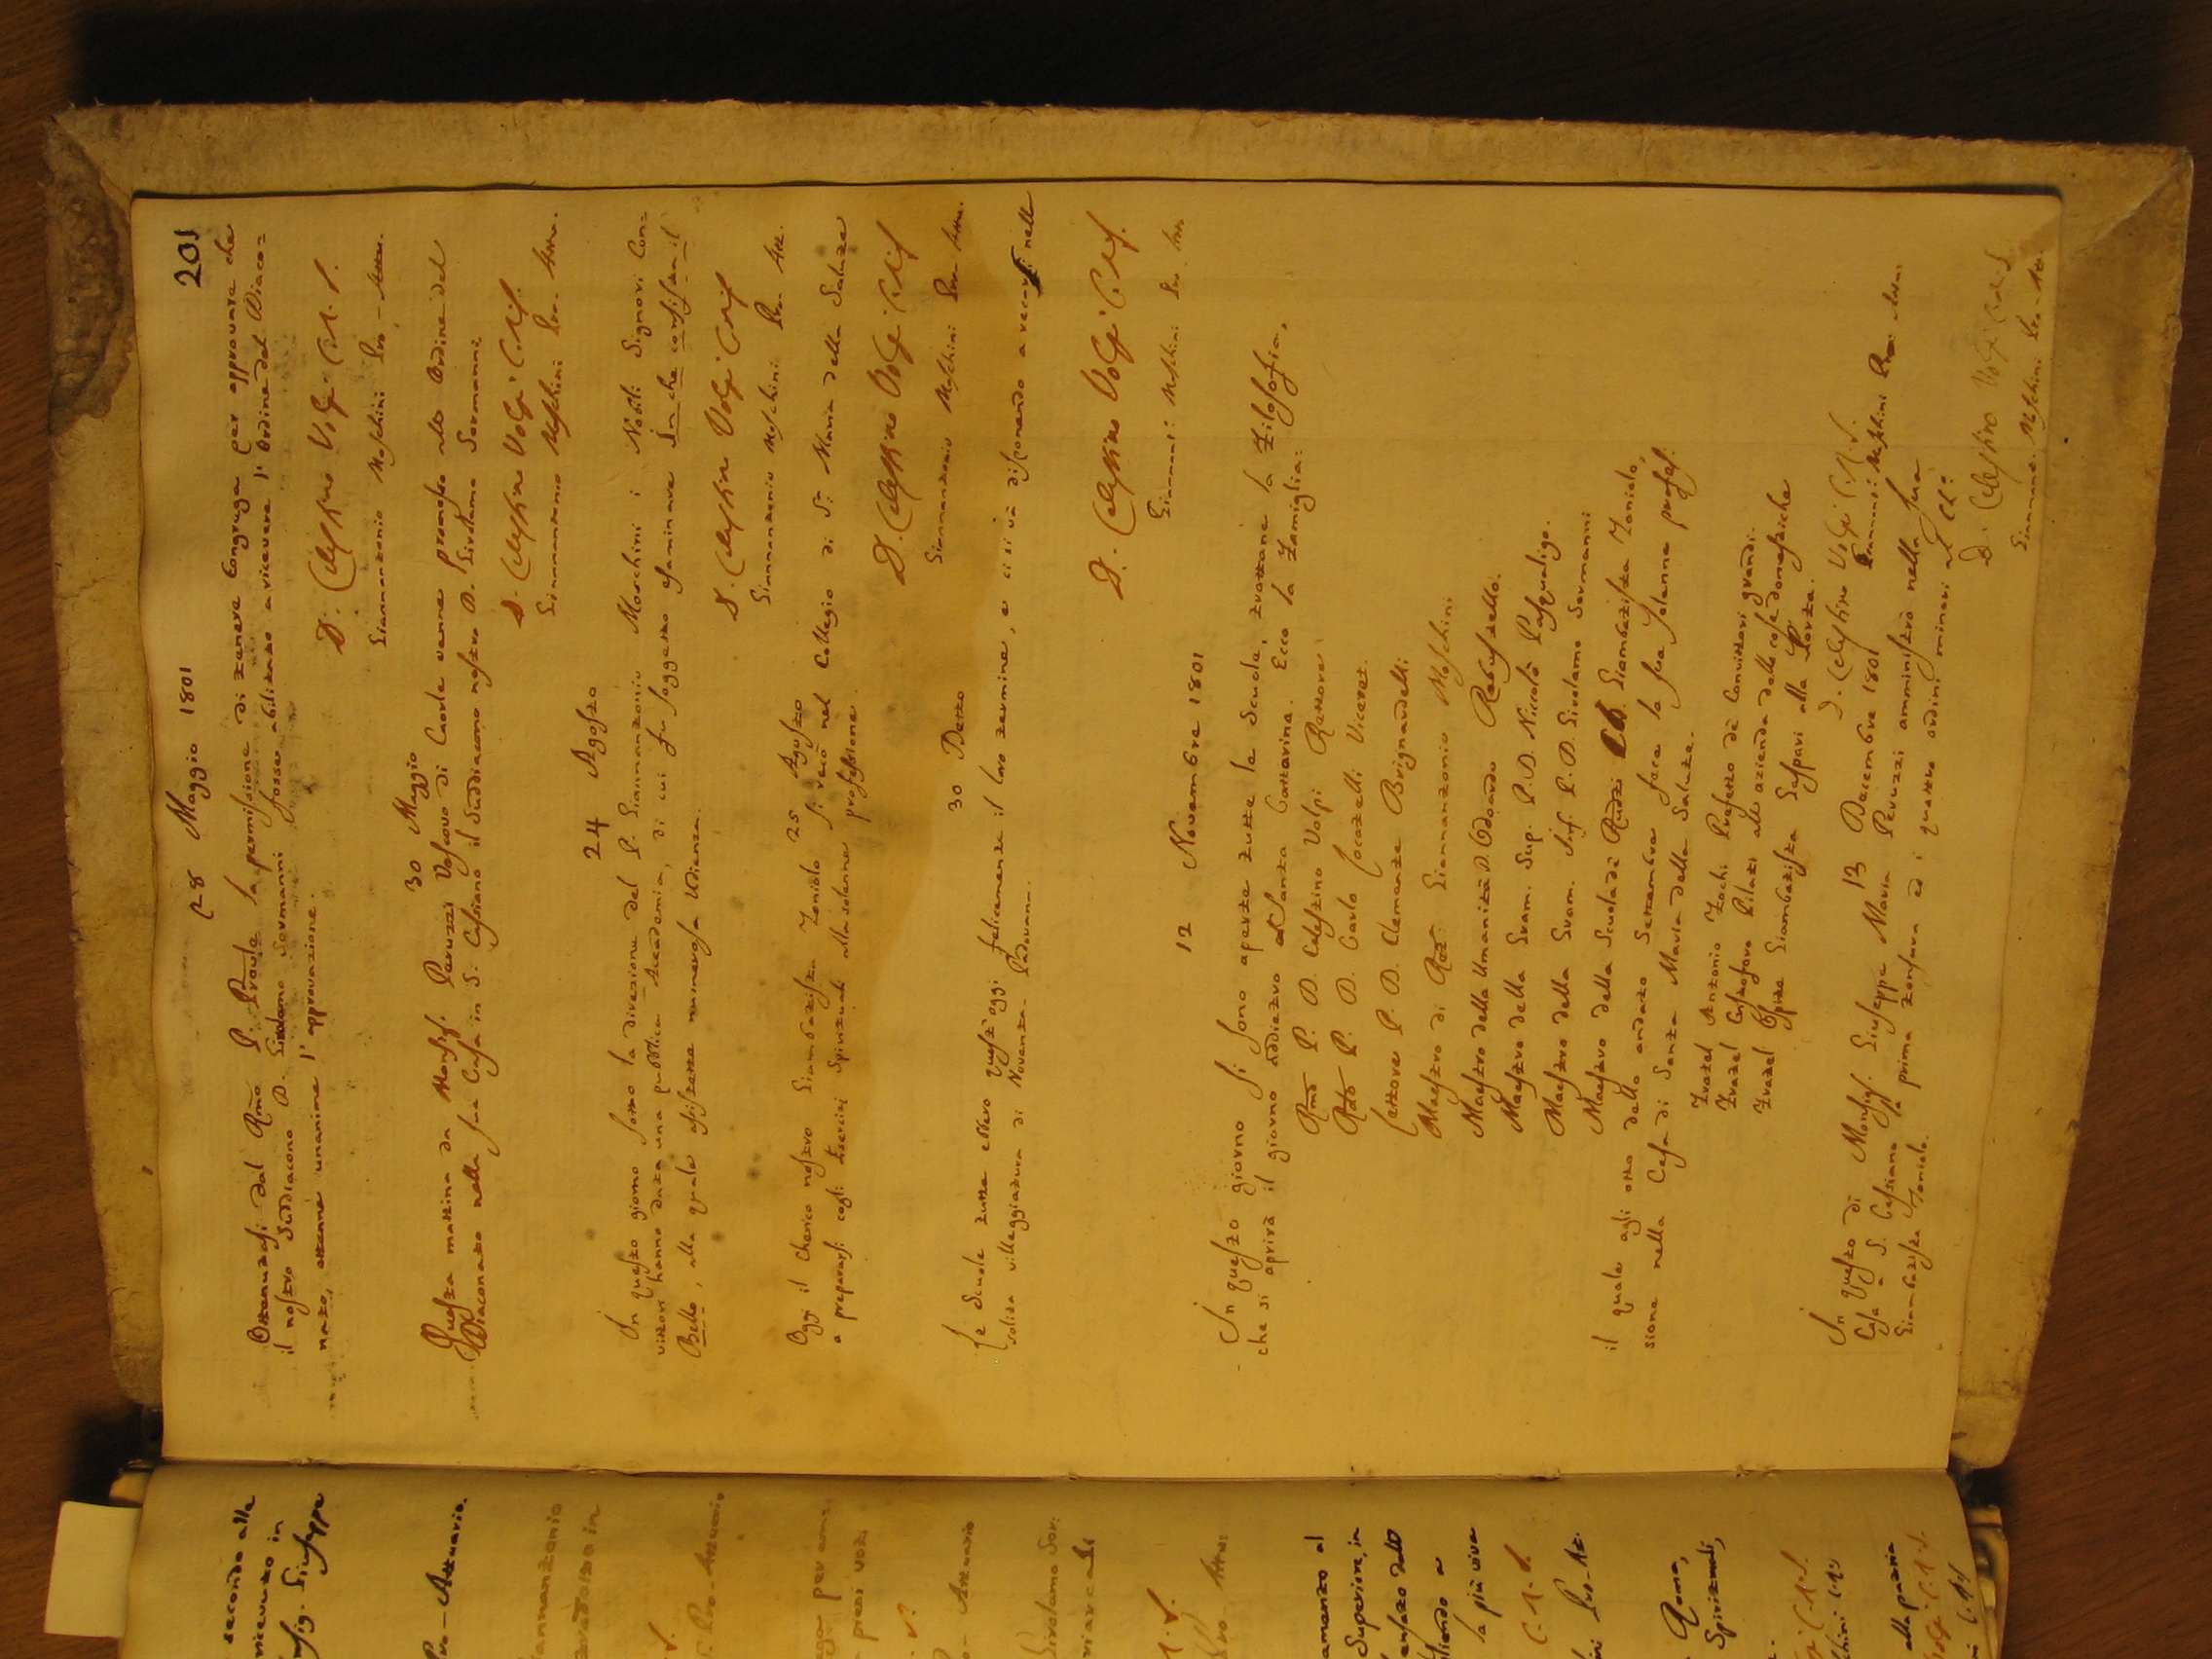 201
28 Maggio 1801
Ottenutasi dal Rmo P. Provle la permissione di tenere Congrega per approvare che
il nostro Suddiacono D. Girolamo Sormanni fosse abilitato a ricevere l'Ordine del Diaco=
nato, ottenne unanime l'approvazione.
D. Celestino Volpi C.R.S.
Giannantonio Moschini Pro-Attuo.
30 Maggio
Questa mattina da Monsig. Peruzzi Vescovo di Caorle venne promosso allo Ordine del
Diaconato nella sua Casa in S. Cassiano il Suddiacono nostro D. Girolamo Sormanni.
D. Celestino Volpi C.R.S.
Giannantonio Moschini Pro-Attuo.
24 Agosto
In questo giorno sotto la direzione del P. Giannantonio Moschini i Nobili Signori Con=
vittori hanno data una pubblica Accademia, di cui fu soggetto esaminare In che consista il
Bello, alla quale assistette numerosa Udienza.
D. Celestino Volpi C.R.S.
Giannantonio Moschini Pro-Att.
25 Agosto
Oggi il Cherico nostro Giambatista Toniolo si recò nel Collegio di S. Maria della Salute
a prepararsi cogli Esercizi Spirituali alla solenne professione.
D. Celestino Volpi C.R.S.
Giannantonio Moschini Pro-Attuo.
30 Detto
Le Scuole tutte ebbero quest'oggi felicemente il loro termine, e ci si và disponendo a recarsi nella
solita villeggiatura di Noventa Padovana.
D. Celestino Volpi C.R.S.
Gianant: Moschini Pro-Att.
12 Novembre 1801
In questo giorno si sono aperte tutte le Scuole, trattane la Filosofia,
che si aprirà il giorno addietro a Santa Cattarina. Ecco la Famiglia:
Rmo P. D. Celestino Volpi Rettore
Rdo P. D. Carlo Coccatelli Viceret.
Lettore P. D. Clemente Brignardelli
Maestro di Ret. Giannantonio Moschini
Maestro della Umanità D. Odoardo Rabustello.
Maestro della Gram. Sup. P. D. Niccolò Pasqualigo.
Maestro della Gram. Inf. P. D. Girolamo Sormanni
Maestro della Scuola de Rudi Giambatista Toniolo,
il quale agli otto dello andato Settembre fece la sua solenne profes=
sione nella Casa di Santa Maria della Salute.
Fratel Antonio Zochi Prefetto dè Convittori grandi.
Fratel Cristoforo Pilati alle azienda delle cose domestiche
Fratel Ospite Giambatista Gaspari alla Porta.
D. Celestino Volpi C.R.S.
Gianant: Moschini Pro-Attuo:
13 Decembre 1801
In questo dì Monsig. Giuseppe Maria Peruzzi amministrò nella sua
Casa a S. Cassiano la prima tonsura ed i quattro ordini minori al Ch:
Giambatista Toniolo.
D. Celestino Volpi C.R.S.
Gianant. Moschini Pro-Att.
secondo alla
ricevuto in
Giuseppe
Pro-Attuario.
Giannantonio
in
Pro-Attuario
per am
Attuario
Girolamo Sor:
Superiore, in
la più viva
C.R.S.
Pro-At.
Roma,
Spirituali,
C.R.S.
alla patria
Volpi C.R.S.